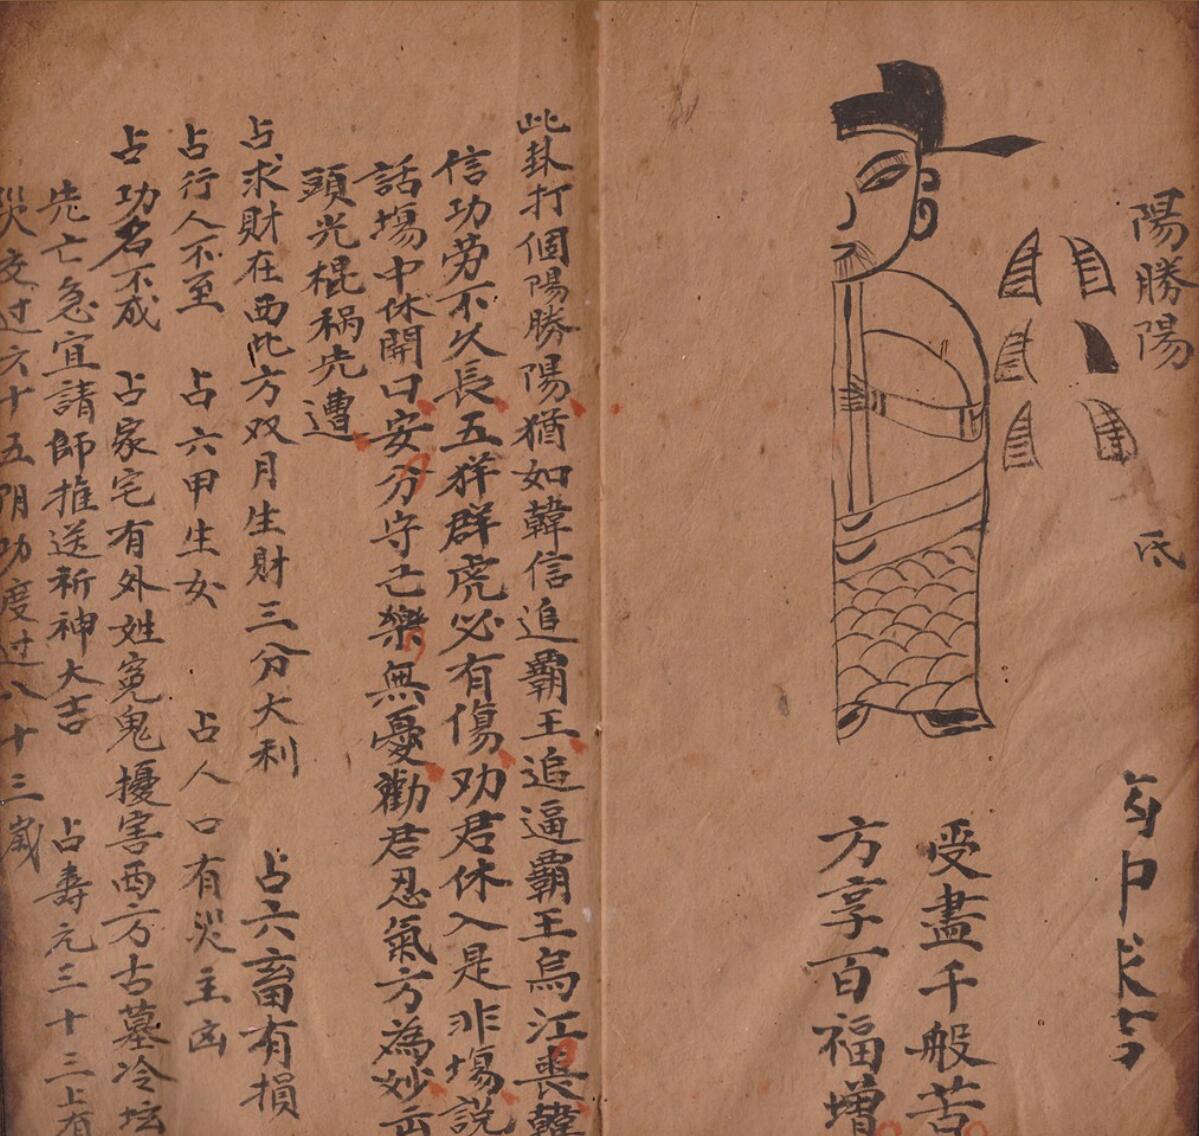 陽勝陽
氏
受盡千般苦
方享百福增
此卦打個陽勝陽猶如韓信追霸王追逼霸王烏江喪韓
信功劳不久長五羊群虎必有傷劝君休入是非塲說
話塲中休開口安分守己樂無憂勸君忍氣方為妙云
頭光棍禍先遭
占求財在西北方双月生財三分大利 占六畜有損
占行人不至 占六甲生女 占人口有災主凶
占功名不成 占家宅有外姓寃鬼擾害西方古墓冷坛
先亡急宜請師推送祈神大吉 占壽元三十三上有
災交过六十五阴功度过八十三歲